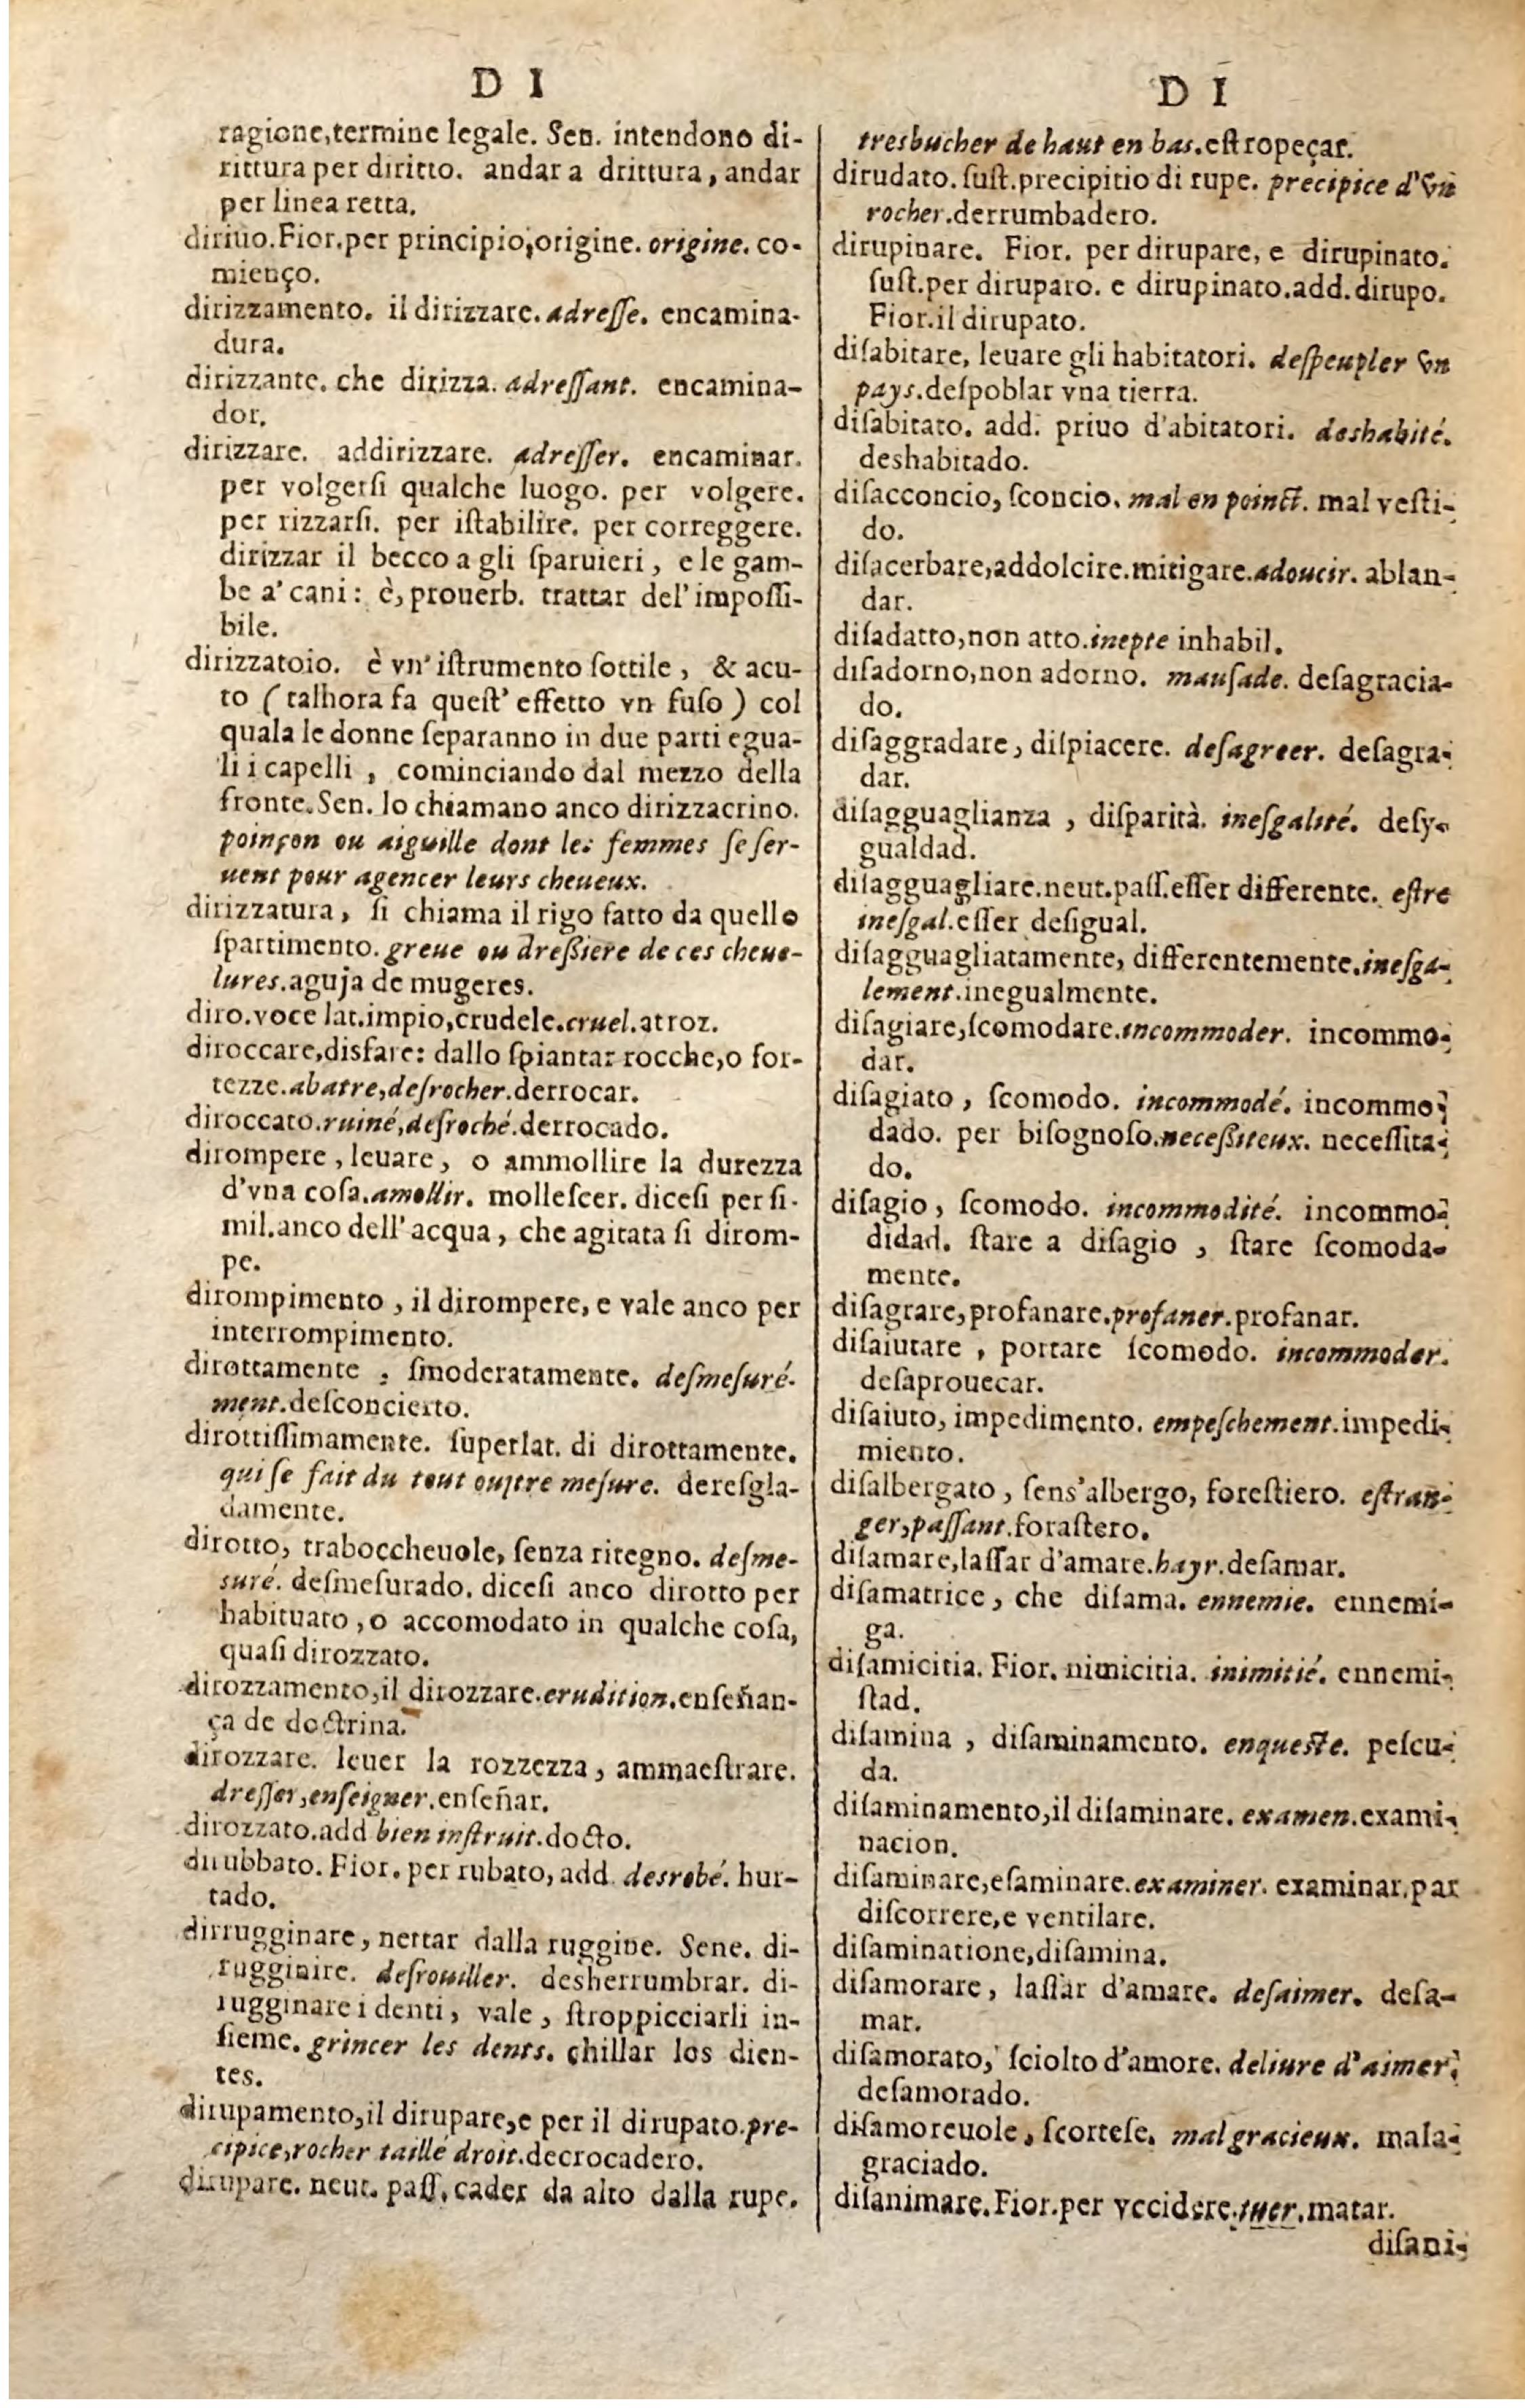 D I
ragione,termine legale. Sen. intendono di-
rittura per diritto. andar a drittura, andar
per linea retta.
diriuo.Fior.per principio,origine. origine. co-
mienço.
dirizzamento. il dirizzare.adreſſe. encamina-
dura.
dirizzante. che dirizza. adreſſant. encamina-
dor.
dirizzare. addirizzare. adreſſer. encaminar.
per volgerſi qualche luogo. per volgere.
per rizzarſi. per iſtabilire. per correggere.
dirizzar il becco a gli ſparuieri, e le gam-
be a' cani: è, prouerb. trattar del'impoſſi-
bile.
dirizzatoio. è vn' iſtrumento ſottile, & acu-
to (talhora fa queſt' effetto vn fuſo) col
quala le donne ſeparanno in due parti egua-
li i capelli, cominciando dal mezzo della
fronte.Sen. lo chiamano anco dirizzacrino.
poinçon ou aiguille dont les femmes ſe ſer-
uent pour agencer leurs cheueux.
dirizzatura, ſi chiama il rigo fatto da quello
ſpartimento.greue ou dreßiere de ces cheue-
lures.aguja de mugeres.
diro.voce lat.impio,crudele.cruel.atroz.
diroccare,disfare: dallo ſpiantar rocche,o for-
tezze.abatre,deſrocher.derrocar.
diroccato.ruiné,deſroché.derrocado.
dirompere, leuare, o ammollire la durezza
d'vna coſa.amollir. molleſcer. diceſi per ſi-
mil.anco dell' acqua, che agitata ſi dirom-
pe.
dirompimento, il dirompere, e vale anco per
interrompimento.
dirottamente, ſmoderatamente. deſmeſuré-
ment.deſconcierto.
dirottiſſimamente. ſuperlat. di dirottamente.
qui ſe fait du tout oultre meſure. dereſgla-
damente.
dirotto, traboccheuole, ſenza ritegno. deſme-
ſuré. deſmeſurado. diceſi anco dirotto per
habituato, o accomodato in qualche coſa,
quaſi dirozzato.
dirozzamento,il dirozzare.erudition.enſeñan-
ça de doctrina.
dirozzare. leuer la rozzezza, ammaeſtrare.
dreſſer,enſeigner.enſeñar.
dirozzato.add bien inſtruit.docto.
dirubbato. Fior. per rubato, add. desrobé. hur-
tado.
dirrugginare, nettar dalla ruggine. Sene. di-
rugginire. deſrouiller. desherrumbrar. di-
rugginare i denti, vale, ſtroppicciarli in-
ſieme. grincer les dents. chillar los dien-
tes.
dirupamento,il dirupare,e per il dirupato.pre-
cipice,rocher taillé droit.decrocadero.
dirupare. neut. paſſ. cader da alto dalla rupe.
D I
tresbucher de haut en bas.eſtropeçar.
dirudato. ſuſt.precipitio di rupe. precipice d'vn
rocher.derrumbadero.
dirupinare. Fior. per dirupare, e dirupinato.
ſuſt.per diruparo. e dirupinato.add.dirupo.
Fior.il dirupato.
diſabitare, leuare gli habitatori. deſpeupler vn
pays.deſpoblar vna tierra.
diſabitato. add. priuo d'abitatori. deshabité.
deshabitado.
diſacconcio, ſconcio. mal en poinct. mal veſti-
do.
diſacerbare,addolcire.mitigare.adoucir. ablan-
dar.
diſadatto,non atto.inepte inhabil.
diſadorno,non adorno. mauſade. deſagracia-
do.
diſaggradare, diſpiacere. deſagreer. deſagra-
dar.
diſagguaglianza, diſparità. ineſgalité. deſy-
gualdad.
diſagguagliare.neut.paſſ.eſſer differente. eſtre
ineſgal.eſſer deſigual.
diſagguagliatamente, differentemente.ineſga-
lement.inegualmente.
diſagiare,ſcomodare.incommoder. incommo-
dar.
diſagiato, ſcomodo. incommodé. incommo-
dado. per biſognoſo.neceßiteux. neceſſita-
do.
diſagio, ſcomodo. incommodité. incommo-
didad. ſtare a diſagio, ſtare ſcomoda-
mente.
diſagrare,profanare.profaner.profanar.
diſaiutare, portare ſcomodo. incommoder.
deſaprouecar.
diſaiuto, impedimento. empeſchement.impedi-
miento.
diſalbergato, ſens'albergo, foreſtiero. eſtran-
ger,paſſant.foraſtero.
diſamare,laſſar d'amare.hayr.deſamar.
diſamatrice, che diſama. ennemie. ennemi-
ga.
diſamicitia. Fior. nimicitia. inimitié. ennemi-
ſtad.
diſamina, diſaminamento. enqueſte. peſcu-
da.
diſaminamento,il diſaminare. examen.exami-
nacion.
diſaminare,eſaminare.examiner. examinar.par
diſcorrere,e ventilare.
diſaminatione,diſamina.
diſamorare, laſſar d'amare. deſaimer. deſa-
mar.
diſamorato, ſciolto d'amore. deliure d'aimer.
deſamorado.
diſamoreuole, ſcorteſe. mal gracieux. mala-
graciado.
diſanimare.Fior.per vccidere.tuer.matar.
diſani-